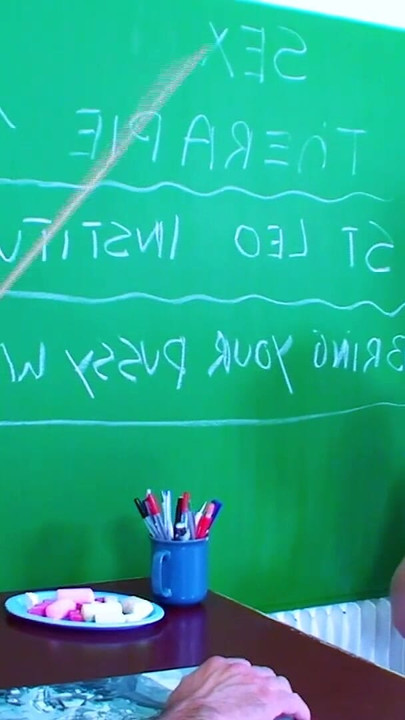 SEX
ThERAPIE
ST LEO INSTITU
BRING YOUR PUSSY W